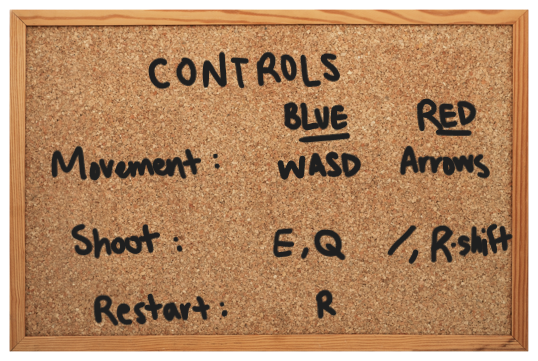 CONTROLS
BLUE RED
Movement: WASD Arrows
Shoot: E, Q /, R-shift
Restart: R